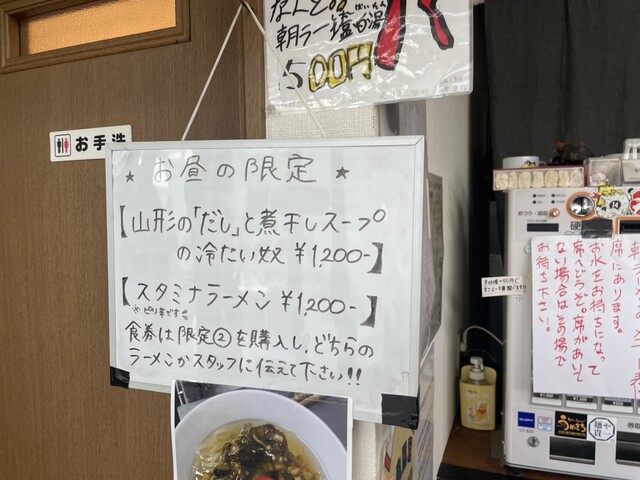 なんとの
朝ラー塩白湯
500円
お手洗
★ お昼の限定 ★
【山形の「だし」と煮干しスープ
の冷たい奴 ¥1,200-】
【スタミナラーメン ¥1,200-】
※ピリ辛です
食券は限定②を購入し、どちらの
ラーメンかスタッフに伝えて下さい!!
席にあります。
お水をお持ちになって
席へどうぞ。席があいて
ない場合はその場で
お待ち下さい!。
麺や